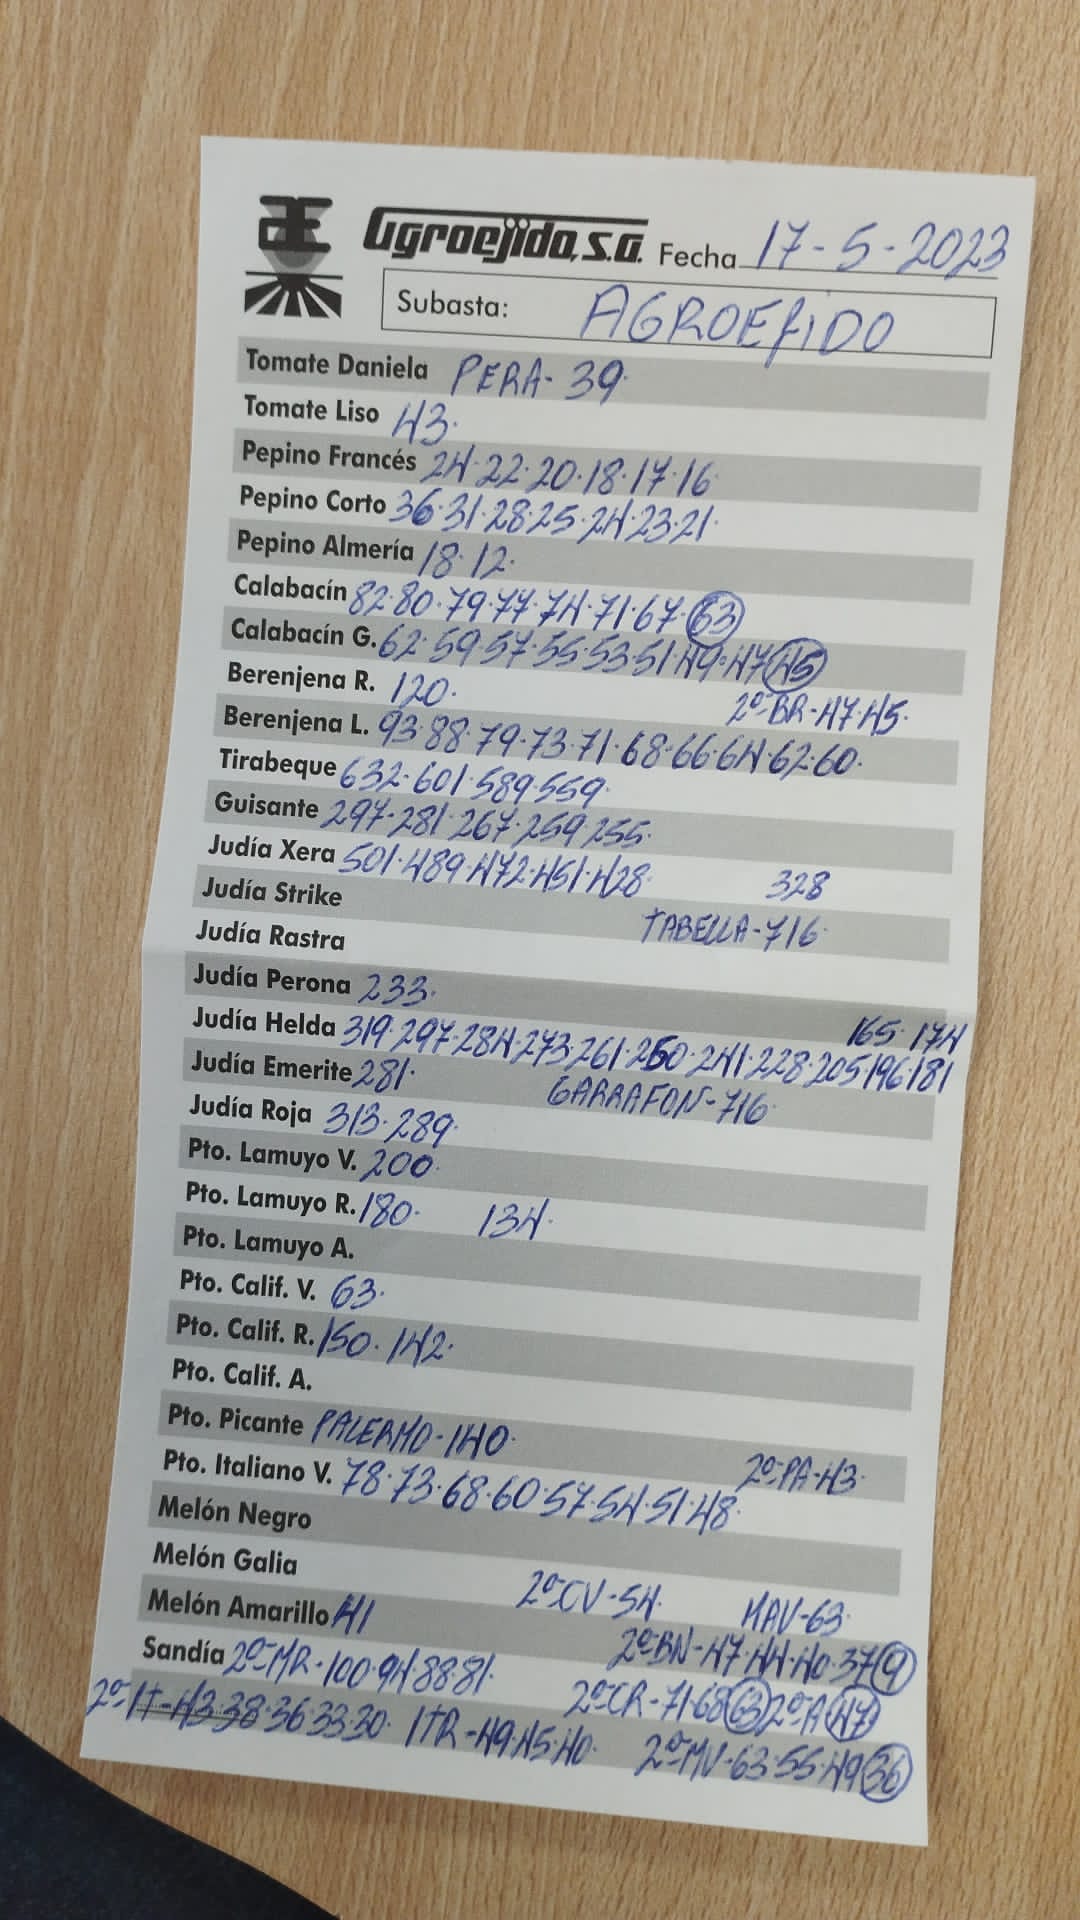 Agroejido, S.A. Fecha 17-5-2023
Subasta: AGROEJIDO
Tomate Daniela PERA-39.
Tomate Liso 43.
Pepino Francés 24.22.20.18.17.16
Pepino Corto 36.31.28.25.24.23.21.
Pepino Almería 18.12.
Calabacín 82.80.79.77.74.71.67.63
Calabacín G. 62.59.57.55.53.51.49.47 45
Berenjena R. 120. 2ª-BR-47.45.
Berenjena L. 93.88.79.73.71.68.66.64.62.60.
Tirabeque 632.601.589.559.
Guisante 297.281.267.259.255.
Judía Xera 501.489.472.451.428. 328
Judía Strike TABELLA-716.
Judía Rastra
Judía Perona 233. 165.174
Judía Helda 319.297.284.273.261.250.241.228.205.196.181
Judía Emerite 281. GARRAFON-716.
Judía Roja 313.289.
Pto. Lamuyo V. 200.
Pto. Lamuyo R. 180. 134.
Pto. Lamuyo A.
Pto. Calif. V. 63.
Pto. Calif. R. 150.142.
Pto. Calif. A.
Pto. Picante PALERMO-140. 2ª-PA-43.
Pto. Italiano V. 78.73.68.60.57.54.51.48.
Melón Negro
Melón Galia 2ª-CV-54. MAV-63.
Melón Amarillo 41 2ª-BN-47.44.40.37 9
Sandía 2ª-MR-100.94.88.81. 2ª-CR-71.68 63 2ª-A 47
2ª-IT-43.38.36.33.30. ITR-49.45.40. 2ª-MV-63.55.49 36